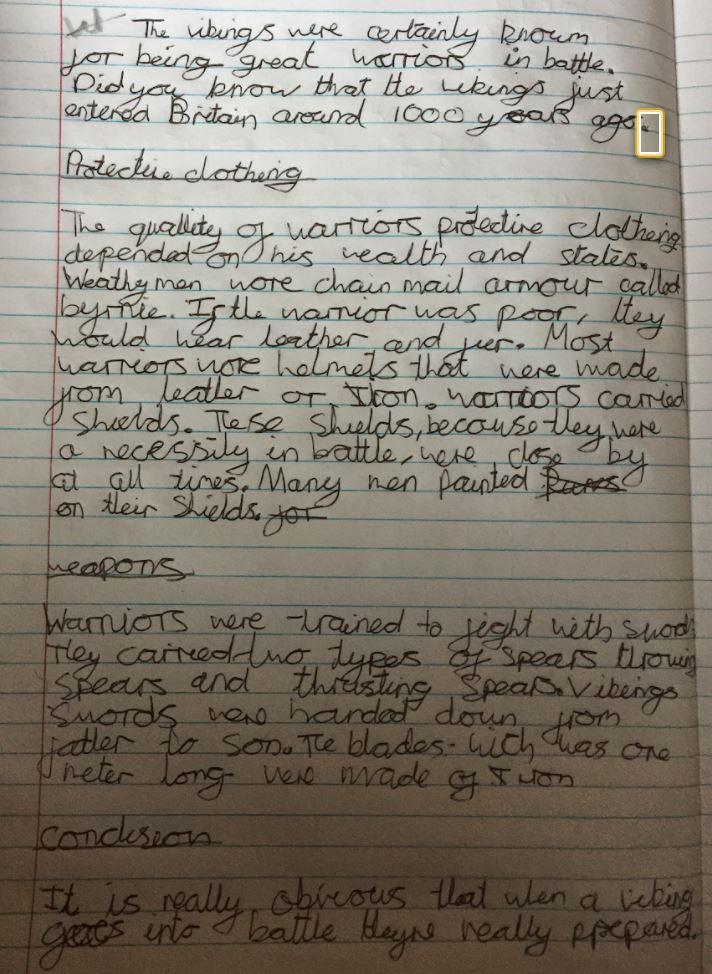 The vikings were certainly known
for being great warriors in battle.
Did you know that the vikings just
entered Britain around 1000 years ago.
Protective clotheing
The quallity of warriors protective clotheing
depended on his wealth and states.
Weathy men wore chain mail armour called
byrnie. If the warrior was poor, they
would wear leather and fur. Most
warriors wore helmets that were made
from leather or Iron. warriors carried
Shields. These shields, because they were
a necessity in battle, were close by
at all times. Many men painted
on their Shields.
weapons
Warriors were trained to fight with sword
They carried two types of spears throwing
spears and thrusting spears. Vikings
Swords were handed down from
father to son. The blades - wich was one
meter long - were made of Iron
Conclusion
It is really obvious that when a viking
goes into battle theyre really ppepared.